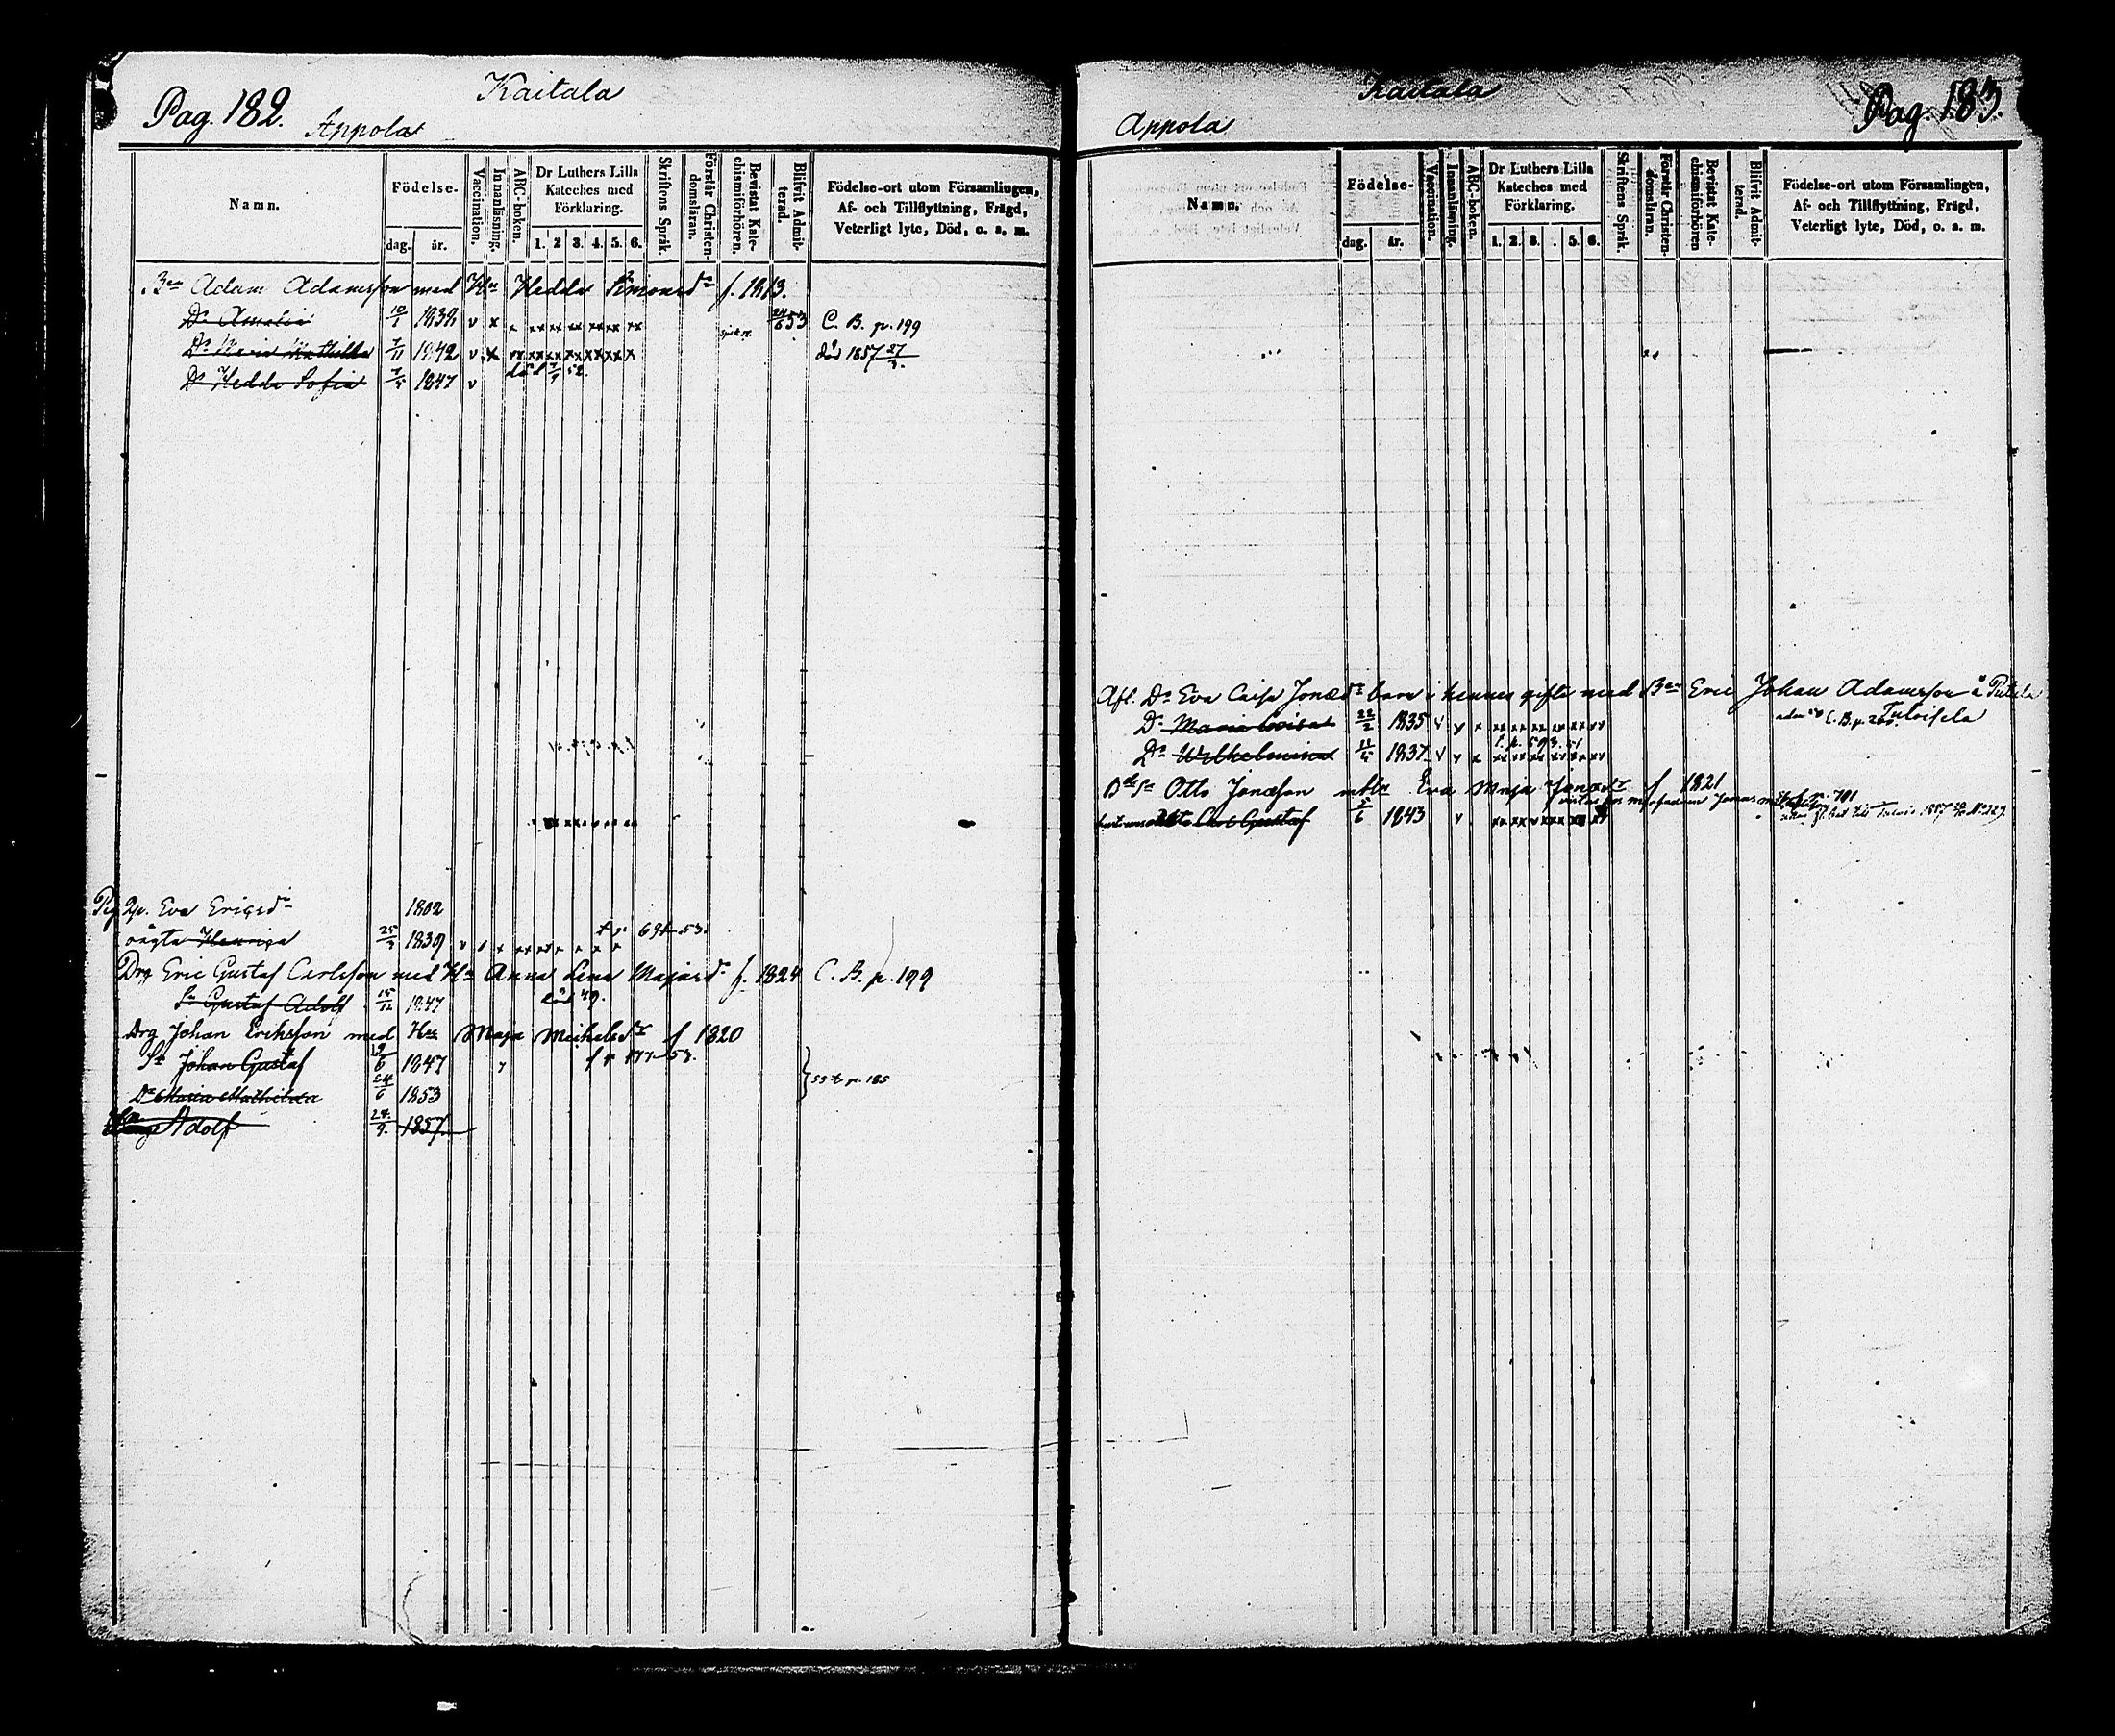 Pag. 182. Kaitala
Appola
Namn.
Födelse.
dag. år.
Vaccination.
Innanläsning.
ABC-boken.
Dr Luthers Lilla Kateches med Förklaring.
1. 2 3. 4. 5. 6.
Skriftens Språk.
Förstår Christendomsläran.
Bevistat Katechismiförhören.
Blifvit Admitterad.
Födelse-ort utom Församlingen,
Af- och Tillflyttning, Frägd,
Veterligt lyte, Död, o. s. m.
Bn Adam Adamsson med Hu Hedda Simonsdr f. 1813.
Dr Amalia 10/1 1838 v x x xx xx xx xx xx xx 24/6 53 C. B. p. 199
Dr Maria Mathilda 7/11 1842 v x xx xx xx xx xx xx x död 1857 27/3.
Dr Hedda Sofia 7/5 1847 v död 7/9 52.
Pig Eva Ericsdr 1802
oägta Henrica 25/3 1839 f. p. 691 53.
Drg Eric Gustaf Carlsson med Hu Anna Lena Majasdr f. 1824 C. B. p. 199
Sn Gustaf Adolf 15/12 1847 död 49.
Drg Johan Eriksson med Hu Maja Michelsdr f 1820
Sn Johan Gustaf 9/6 1847 y f p 177 53.
Dr Maria Mathilda 24/6 1853 53 t p. 185
Adolf 24/9. 1857.
Kaitala Pag. 183.
Appola
Namn.
Födelse-
dag. år.
Vaccination.
Innanläsning.
ABC-boken.
Dr Luthers Lilla Kateches med Förklaring.
1. 2. 3. . 5. 6.
Skriftens Språk.
Förstår Christendomsläran.
Bevistat Katechismiförhören
Blifvit Admitterad.
Födelse-ort utom Församlingen,
Af- och Tillflyttning, Frägd,
Veterligt lyte, Död, o. s. m.
Afl. Dr Eva Caisa Jonædr barn i hennes gifte med Bn Eric Johan Adamsson å
Dr Maria Lovisa 22/2 1835 v y x xx xx xx xx xx yy C. B. p. Tuloisela
Dr Wilhelmina 11/4 1837 v y x xx xx xx xx xx yy
f. p. 593. 51
Sn Otto Jonæson m Eva Maja Jonædr f 1821
Carl Gustaf 5/6 1843 y